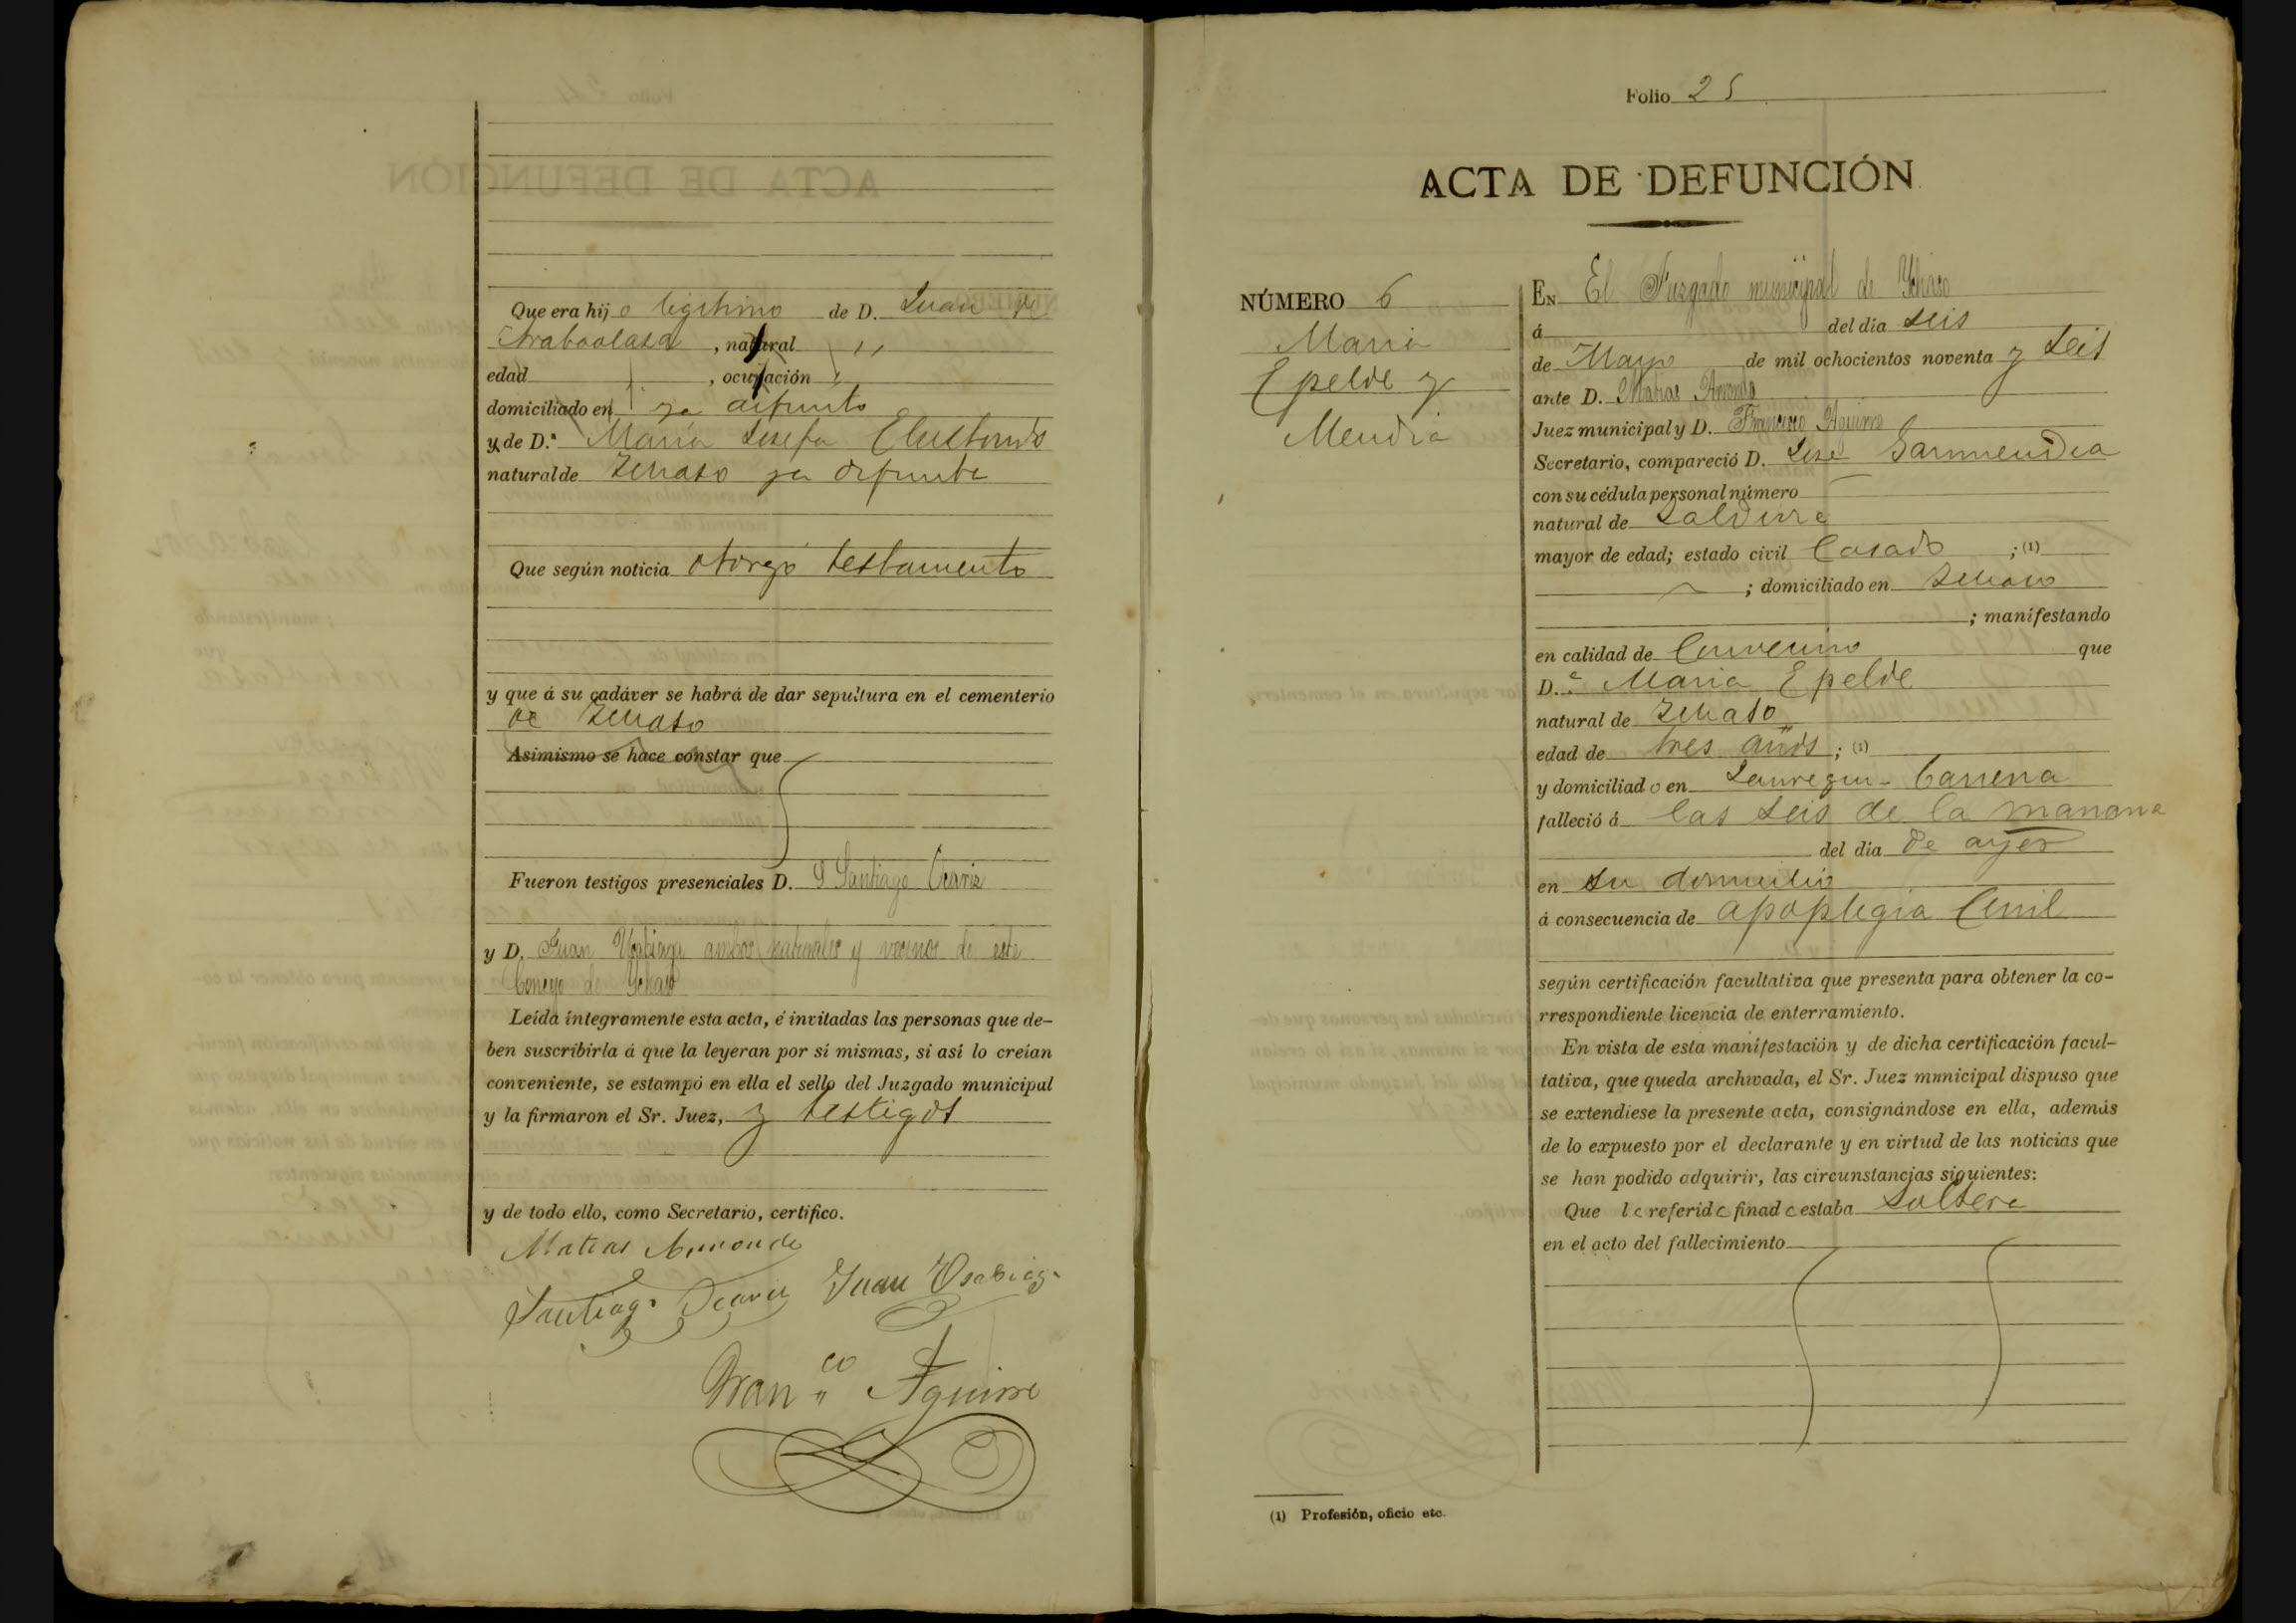 Que era hijo legitimo de D. Juan
, natural
edad , ocupación
domiciliado en ya difunto
y de D.ª María Josefa
natural de Ichaso ya difunta
Que según noticia otorgó testamento
y que á su cadáver se habrá de dar sepultura en el cementerio
de Ichaso
Asimismo se hace constar que
Fueron testigos presenciales D. Santiago
y D. Juan Usabiaga ambos naturales y vecinos de este
Concejo de Ychaso
Leída íntegramente esta acta, é invitadas las personas que de-
ben suscribirla á que la leyeran por sí mismas, si así lo creían
conveniente, se estampó en ella el sello del Juzgado municipal
y la firmaron el Sr. Juez, y testigos
y de todo ello, como Secretario, certifico.
Matias Arrondo
Santiago Juan Usabiaga
Fran.co Aguirre
Folio 25
ACTA DE DEFUNCIÓN
NÚMERO 6
Maria
Epelde y
Mendia
EN El Juzgado municipal de Ychaso
á del dia seis
de Mayo de mil ochocientos noventa y seis
ante D. Matias Arrondo
Juez municipal y D. Francisco Aguirre
Secretario, compareció D. José Garmendia
con su cédula personal número
natural de
mayor de edad; estado civil Casado ; (1)
; domiciliado en Ichaso
; manifestando
en calidad de Convecino que
D.ª Maria Epelde
natural de Ichaso
edad de tres años ; (1)
y domiciliado en Jauregui-Barrena
falleció á las seis de la manana
del dia de ayer
en su domicilio
á consecuencia de apoplegia
según certificación facultativa que presenta para obtener la co-
rrespondiente licencia de enterramiento.
En vista de esta manifestación y de dicha certificación facul-
tativa, que queda archivada, el Sr. Juez mnnicipal dispuso que
se extendiese la presente acta, consignándose en ella, además
de lo expuesto por el declarante y en virtud de las noticias que
se han podido adquirir, las circunstancias siguientes:
Que la referida finada estaba Soltera
en el acto del fallecimiento
(1) Profesión, oficio etc.